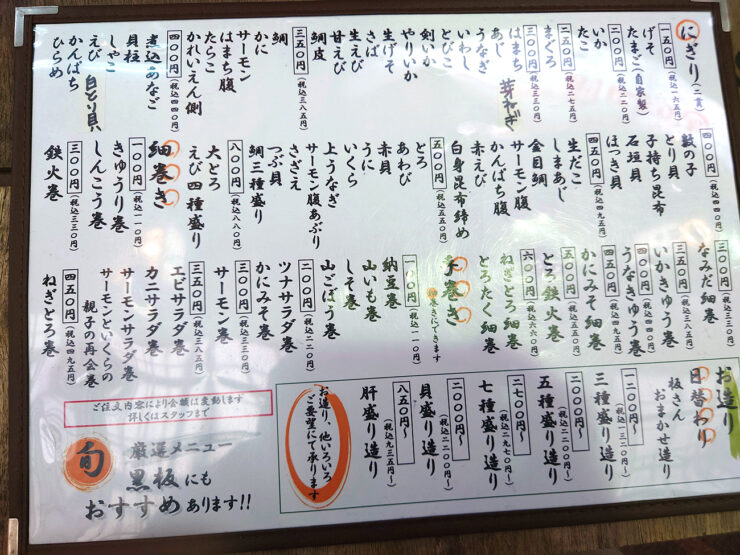 にぎり(二貫)
一五〇円(税込一六五円)
げそ
たまご(自家製)
二〇〇円(税込二二〇円)
いか
たこ
二五〇円(税込二七五円)
まぐろ
三〇〇円(税込三三〇円)
はまち
芽ねぎ
あじ
うなぎ
いわし
とびこ
剣いか
やりいか
生げそ
さば
生えび
甘えび
鯛皮
三五〇円(税込三八五円)
鯛
かに
サーモン
はまち腹
たらこ
かれいえん側
四〇〇円(税込四四〇円)
煮込あなご
貝柱
しゃこ
えび
白とり貝
かんぱち
ひらめ
四〇〇円(税込四四〇円)
数の子
とり貝
子持ち昆布
石垣貝
ほっき貝
四五〇円(税込四九五円)
生だこ
しまあじ
金目鯛
サーモン腹
かんぱち腹
赤えび
白身昆布締め
五〇〇円(税込五五〇円)
とろ
あわび
赤貝
うに
いくら
上うなぎ
サーモン腹あぶり
さざえ
つぶ貝
鯛三種盛り
八〇〇円(税込八八〇円)
大とろ
えび四種盛り
細巻き
一〇〇円(税込一一〇円)
きゅうり巻
しんこう巻
三〇〇円(税込三三〇円)
鉄火巻
三〇〇円(税込三三〇円)
なみだ細巻
三五〇円(税込三八五円)
いかきゅう巻
うなきゅう巻
四〇〇円(税込四四〇円)
かにみそ細巻
五〇〇円(税込五五〇円)
とろ鉄火巻
六〇〇円(税込六六〇円)
ねぎとろ細巻
とろたく細巻
手巻き
細巻きにできます
一〇〇円(税込一一〇円)
納豆巻
山いも巻
しそ巻
山ごぼう巻
二〇〇円(税込二二〇円)
ツナサラダ巻
かにみそ巻
三〇〇円(税込三三〇円)
サーモン巻
三五〇円(税込三八五円)
エビサラダ巻
カニサラダ巻
サーモンサラダ巻
サーモンといくらの
親子の再会巻
四五〇円(税込四九五円)
ねぎとろ巻
お造り
日替わり
板さん
おまかせ造り
一二〇〇円〜(税込一三二〇円)
三種盛り造り
二〇〇〇円〜(税込二二〇〇円)
五種盛り造り
二七〇〇円〜(税込二九七〇円)
七種盛り造り
二〇〇〇円〜(税込二二〇〇円)
貝盛り造り
八五〇円〜(税込九三五円〜)
肝盛り造り
お造り、他いろいろ
ご要望にて承ります
ご注文内容により金額は変動します
詳しくはスタッフまで
旬
厳選メニュー
黒板にも
おすすめあります!!